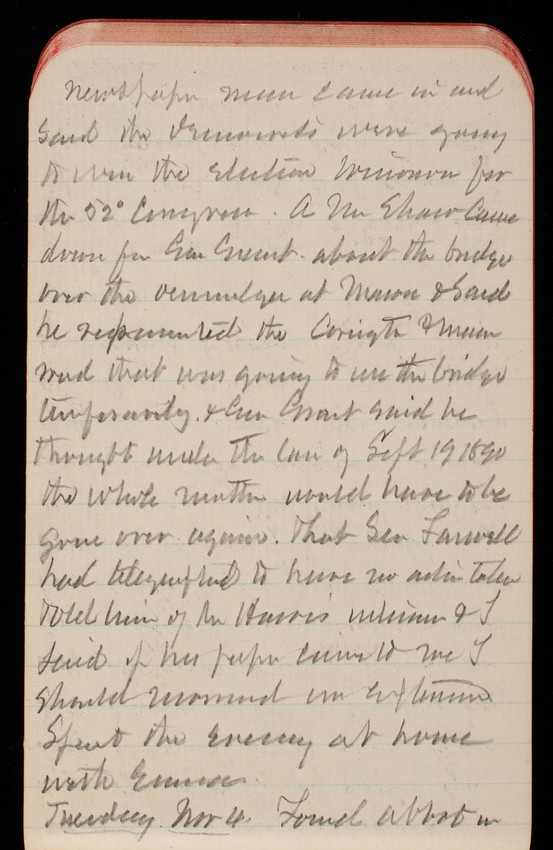 newspaper men came in and
said the democrats were going
to win the election tomorrow for
the 52° Congress. A Mr Shaw came
down for Gen Grant about the bridge
over the ocmulgee at Macon & said
he represented the Covington & Macon
road that was going to use the bridge
temporarily. & Gen Grant said he
thought under the law of Sept 19 1890
the whole matter would have to be
gone over again. That Sen Farwell
had telegraphed to have no action taken
told him of Mr Harris & I
said if his paper came to me I
should recommend an extension
Spent the evening at home
with Emma.
Tuesday. Nov 4. Found Abbot in